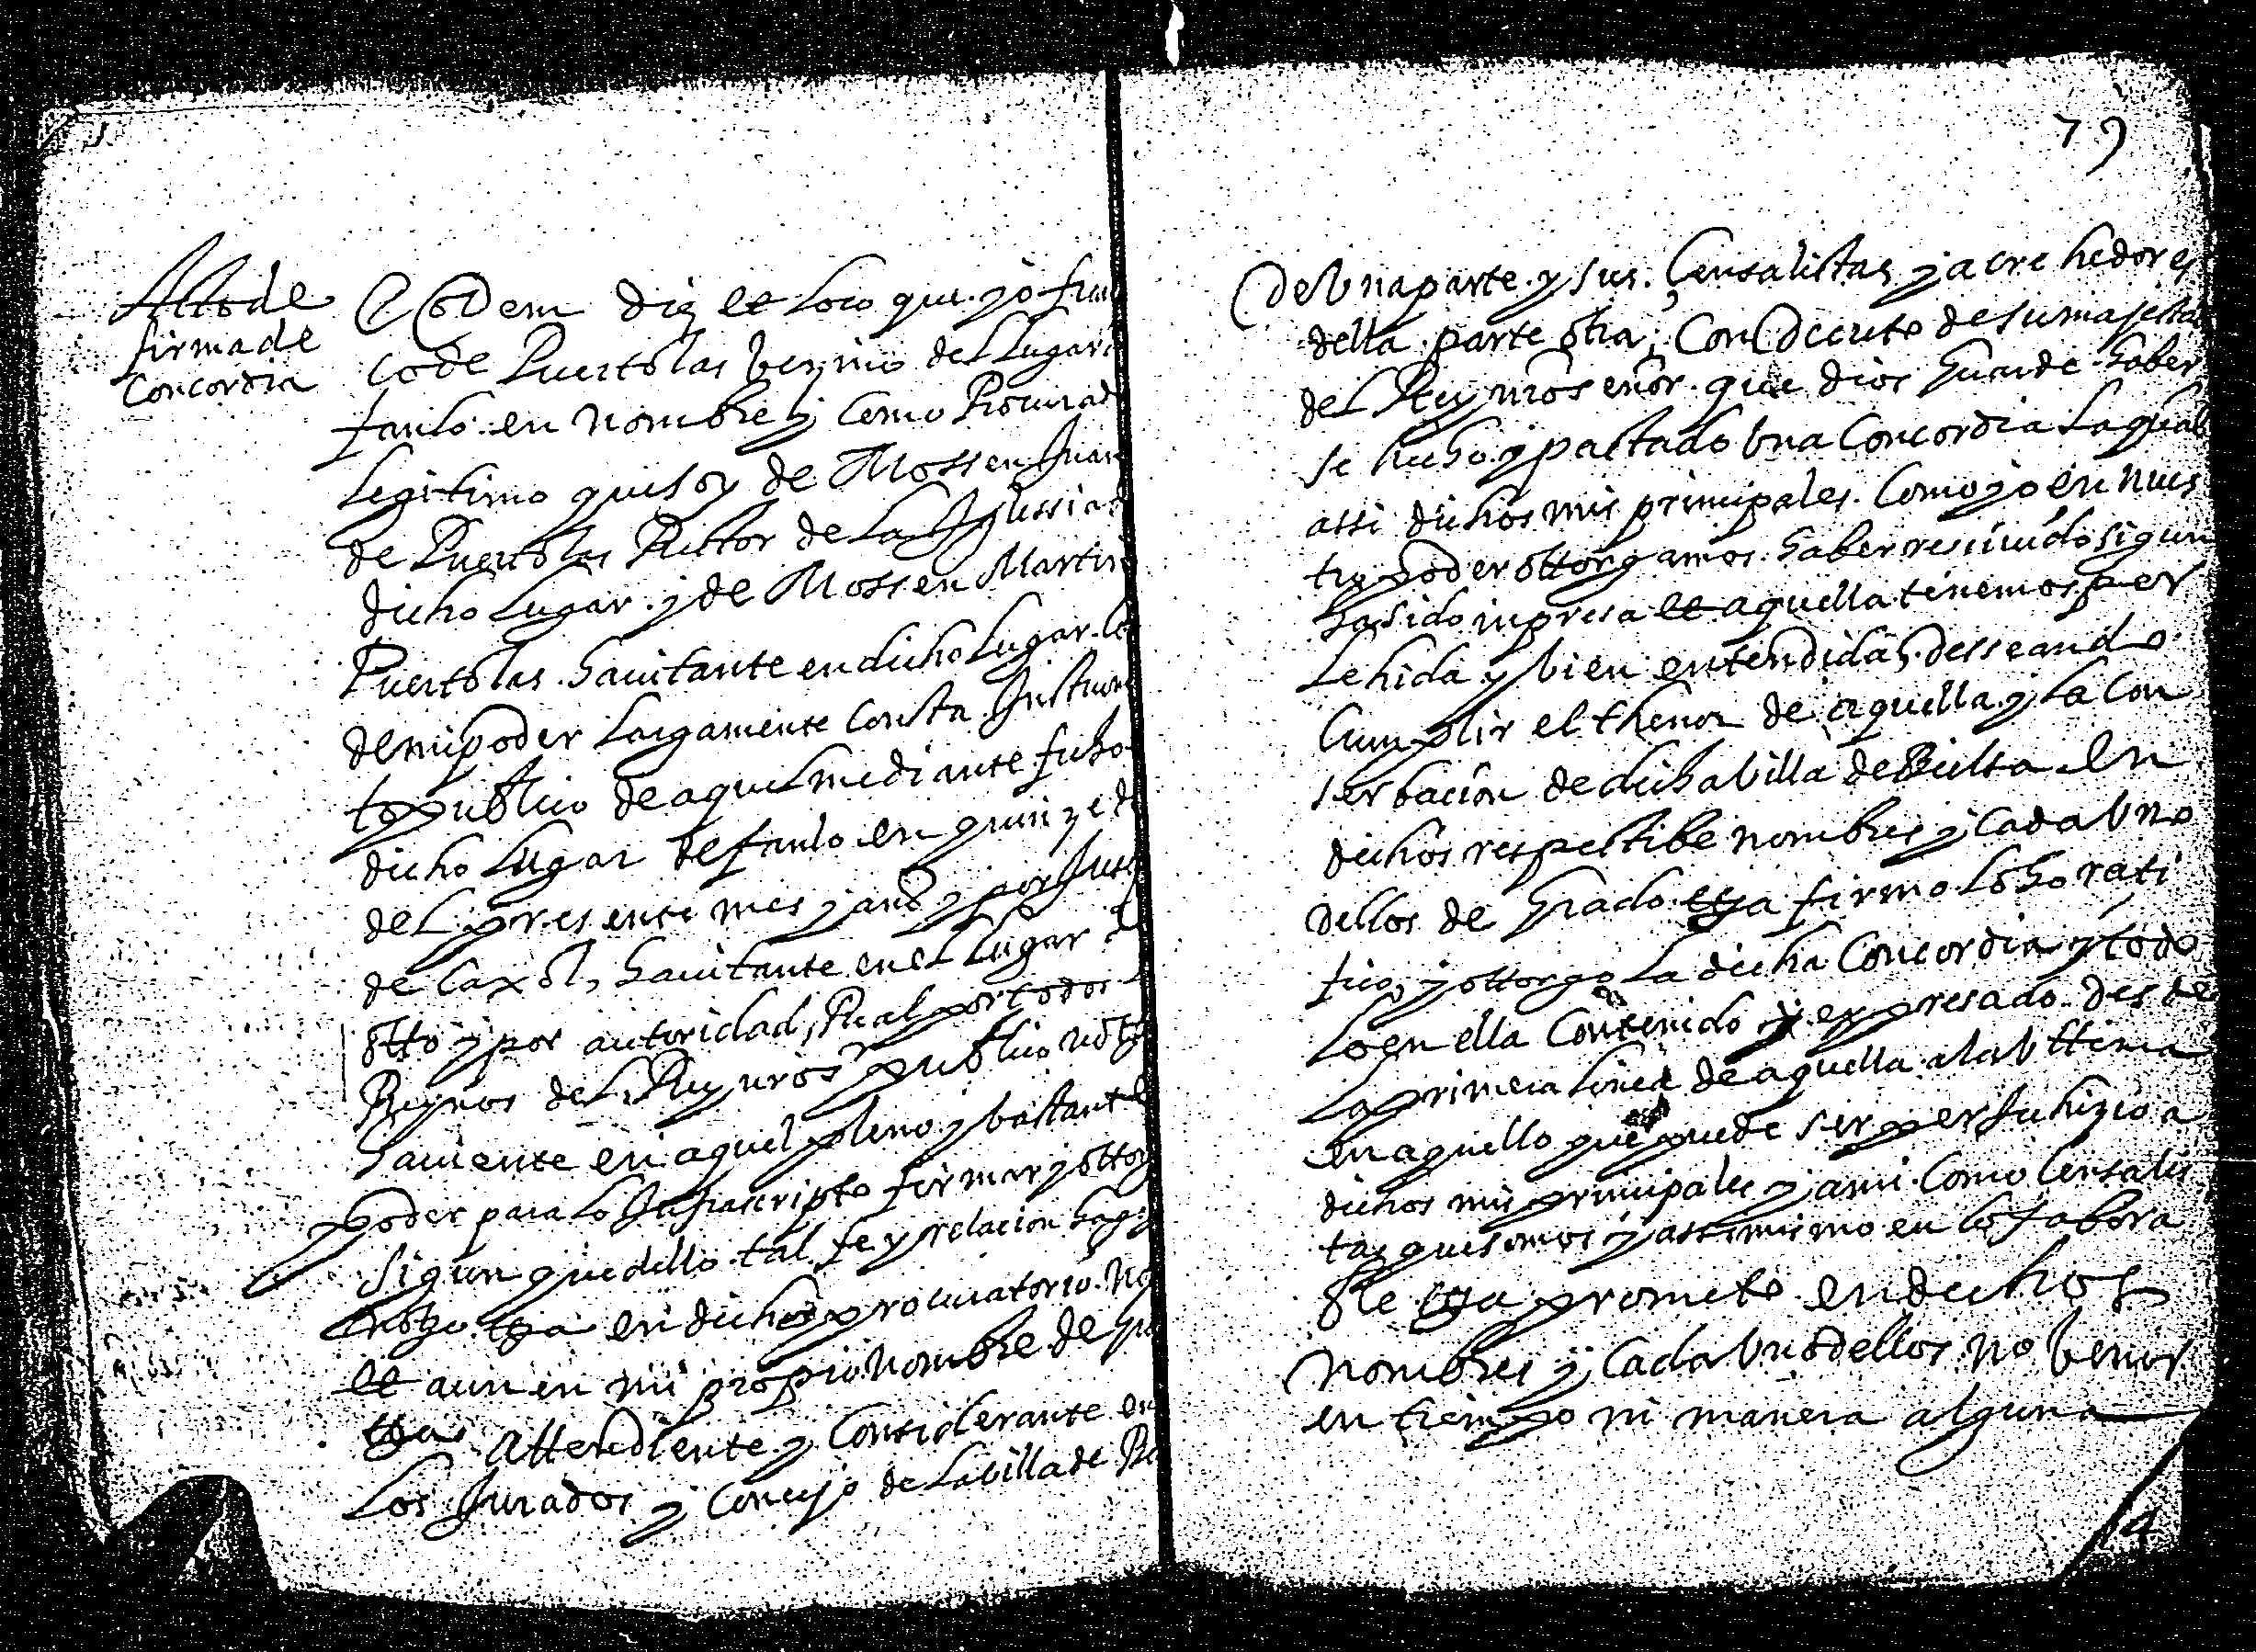 Acto de
firma de
Concordia
Eodem die et loco que yo fran
co de Puertolas vezino del Lugar d
fanlo en nombre y Como Procurad
Legitimo que soy de Mossen Juan
de Puertolas Rictor de La Iglissia d
dicho Lugar y de Mossen Martin
Puertolas havitante en dicho Lugar
de mi poder Largamente Consta Instrum
to publico de aquel mediante fecho
dicho Lugar de fanlo en quinze d
del presente mes y año y por
de Caxol, havitante en el Lugar
otto y por autoridad Real por todos
Reynos del Rey nros.r publico not
haviente en aquel pleno y bastante
poder para Lo Infrascripto firmar y ottor
Sigun que dello tal fe y relacion hago
notto en dicho procuratorio no
et aun en mi propio nombre de
Attendiente y Considerante
Los Jurados y Concejo de La villa de
79
de Una parte y sus Censalistas y acrehedores
della parte otra, Con Decreto de su majesta
del Rey nro señor que dios Guarde haber
se hecho y pactado Una Concordia La qual
assi dichos mis principales Como yo en nues
tro poder ottorgamos haber recivido sigun
ha sido inpresa et aquella tenemos por
Lehida y bien entendida, desseando
Cumplir el thenor de aquella y La Con
serbacion de dicha villa de Bielsa En
dichos respectibe nombres y Cada Uno
dellos de Grado firmo Loho rati
fico, y ottorgo La dicha Concordia y todo
Lo en ella Contenido y expresado desde
La primera Linea de aquella a la Ultima
en aquello que puede ser perjuhizio a
dichos mis principales y a mi Como Censalis
tas que somos y assi mismo en lo fabora
ble prometo en dichos
Nombres y Cada Uno dellos no Venir
en tiempo ni manera alguna